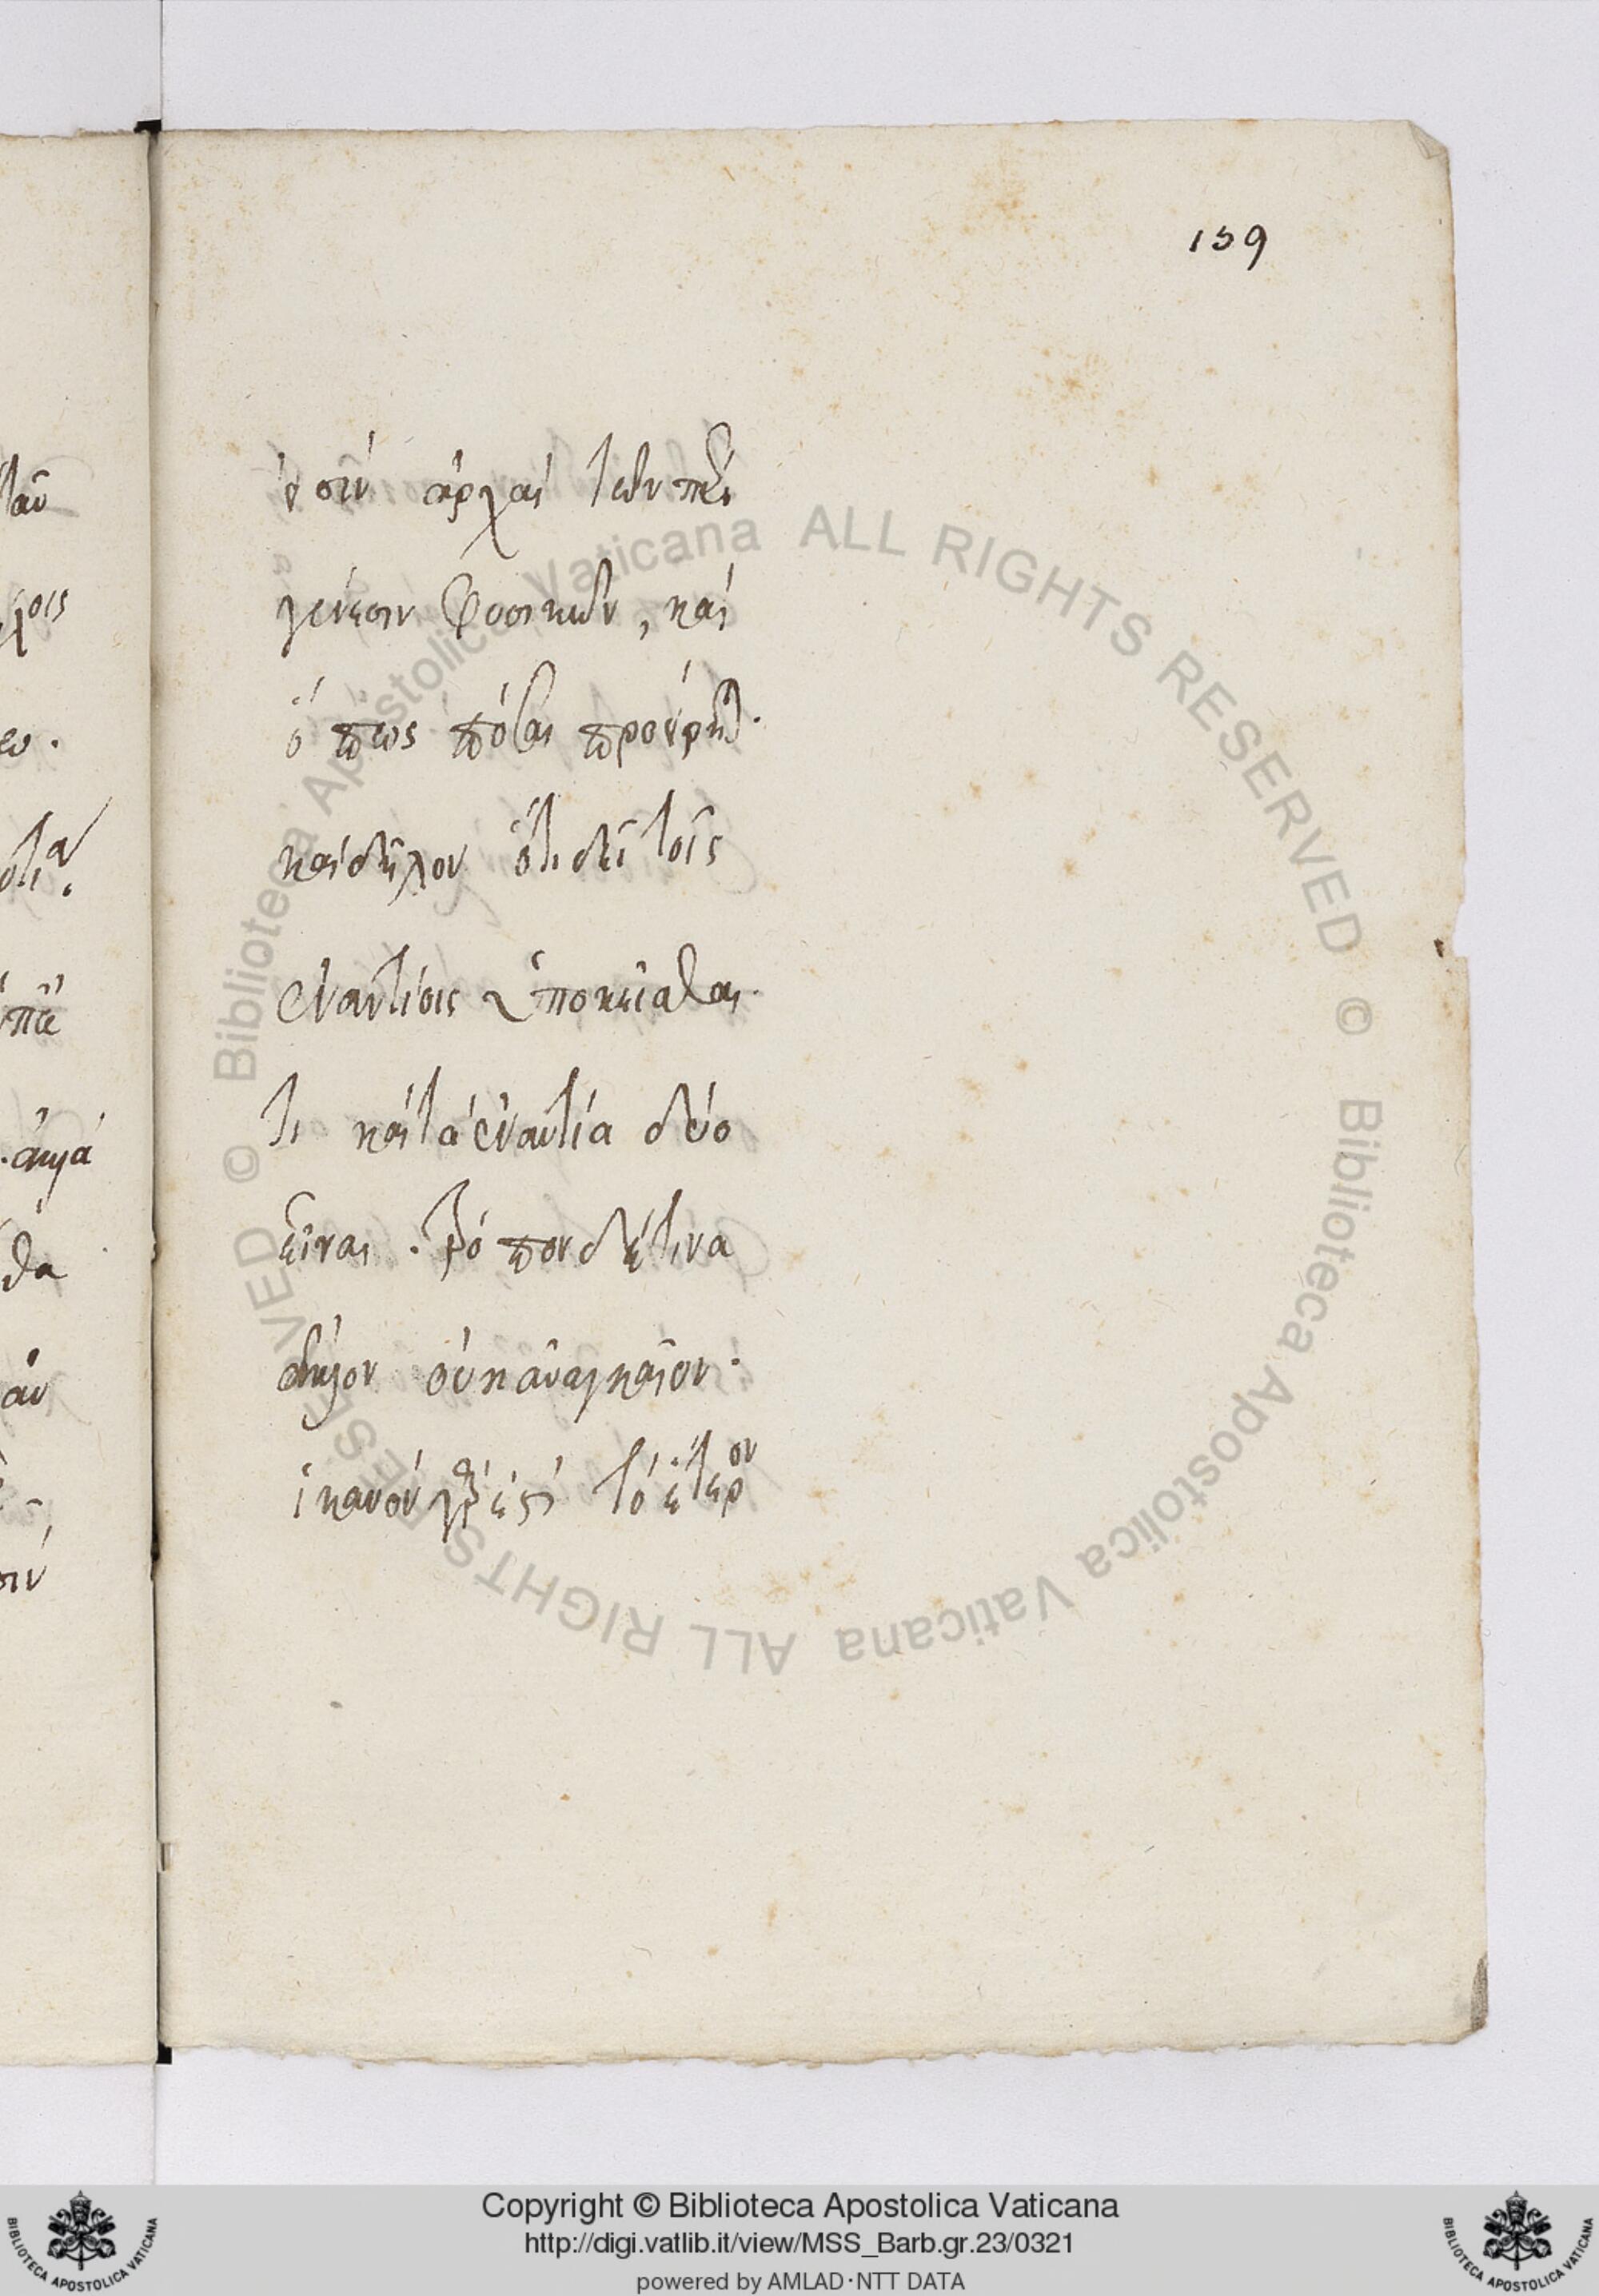 159
σὶν ἀρχαὶ τῶν περὶ
γένεσιν φυσικῶν, καὶ
ὅπως πόσαι
καὶ δῆλον ὅτι δεῖ τοῖς
ἐναντίοις ὑποκεῖσθαι.
τι καὶ τὰ ἐναντία δύο
εἶναι. τρόπον δέ τινα
ἄλλον οὐκ ἀναγκαῖον.
ἱκανὸν γὰρ ἔσται τὸ ἕτερον
ταῦ
οις
ευ.
θα
αὐ
σιν
© Biblioteca Apostolica Vaticana ALL RIGHTS RESERVED © Biblioteca Apostolica Vaticana ALL RIGHTS RESERVED
Copyright © Biblioteca Apostolica Vaticana
http://digi.vatlib.it/view/MSS_Barb.gr.23/0321
powered by AMLAD·NTT DATA
BIBLIOTECA APOSTOLICA VATICANA
BIBLIOTECA APOSTOLICA VATICANA